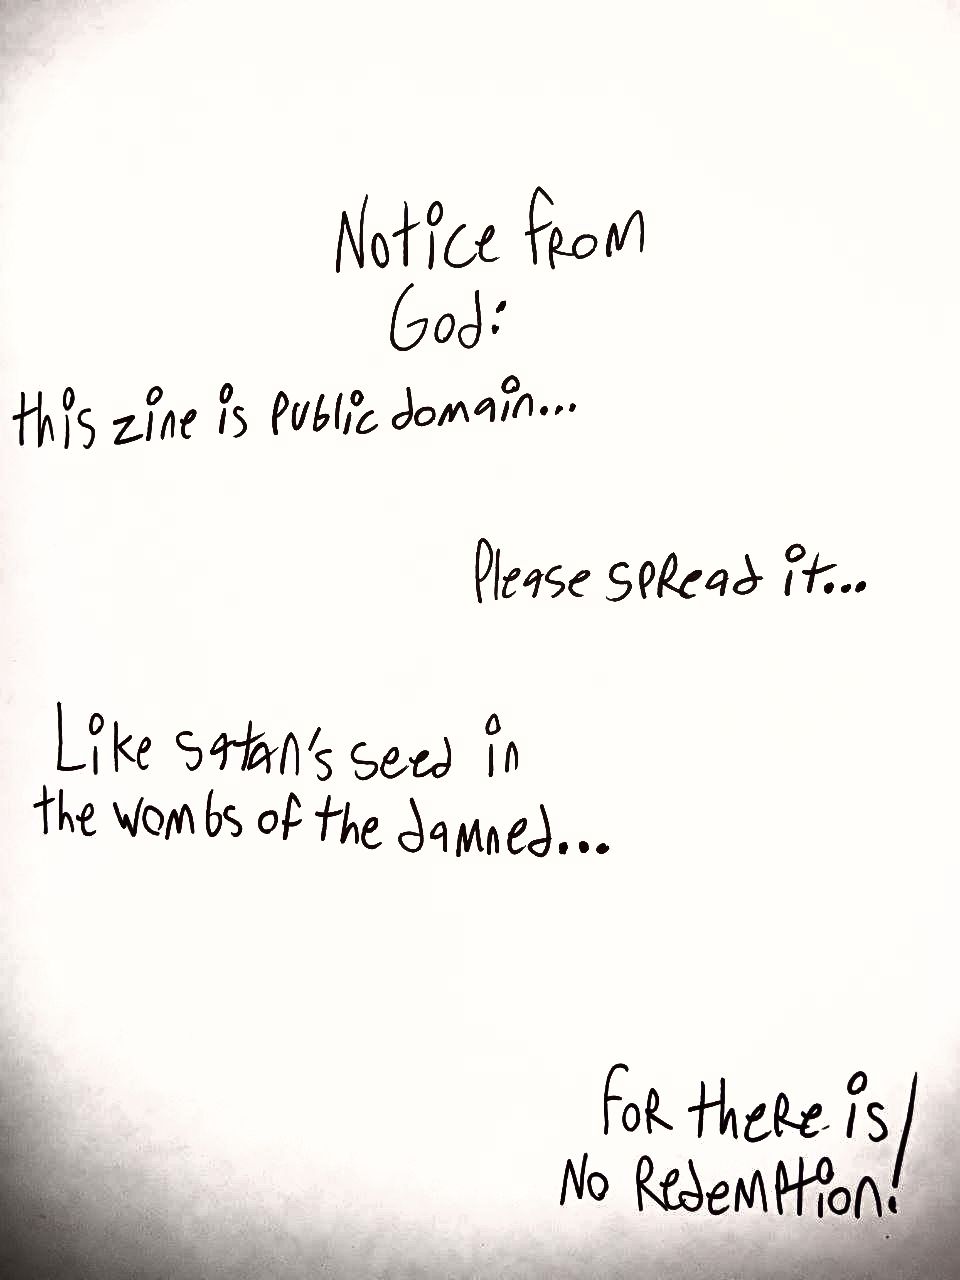 Notice from
God:
this zine is public domain...
Please spread it...
Like satan's seed in
the wombs of the damned...
For there is
No Redemption!